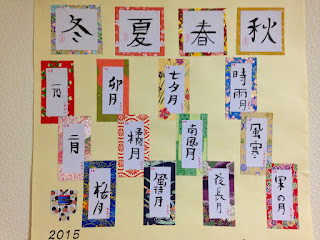 冬
夏
春
秋
一月
卯月
七夕月
時雨月
二月
橘月
南風月
風寒
風待月
夜長月
果の月
2015